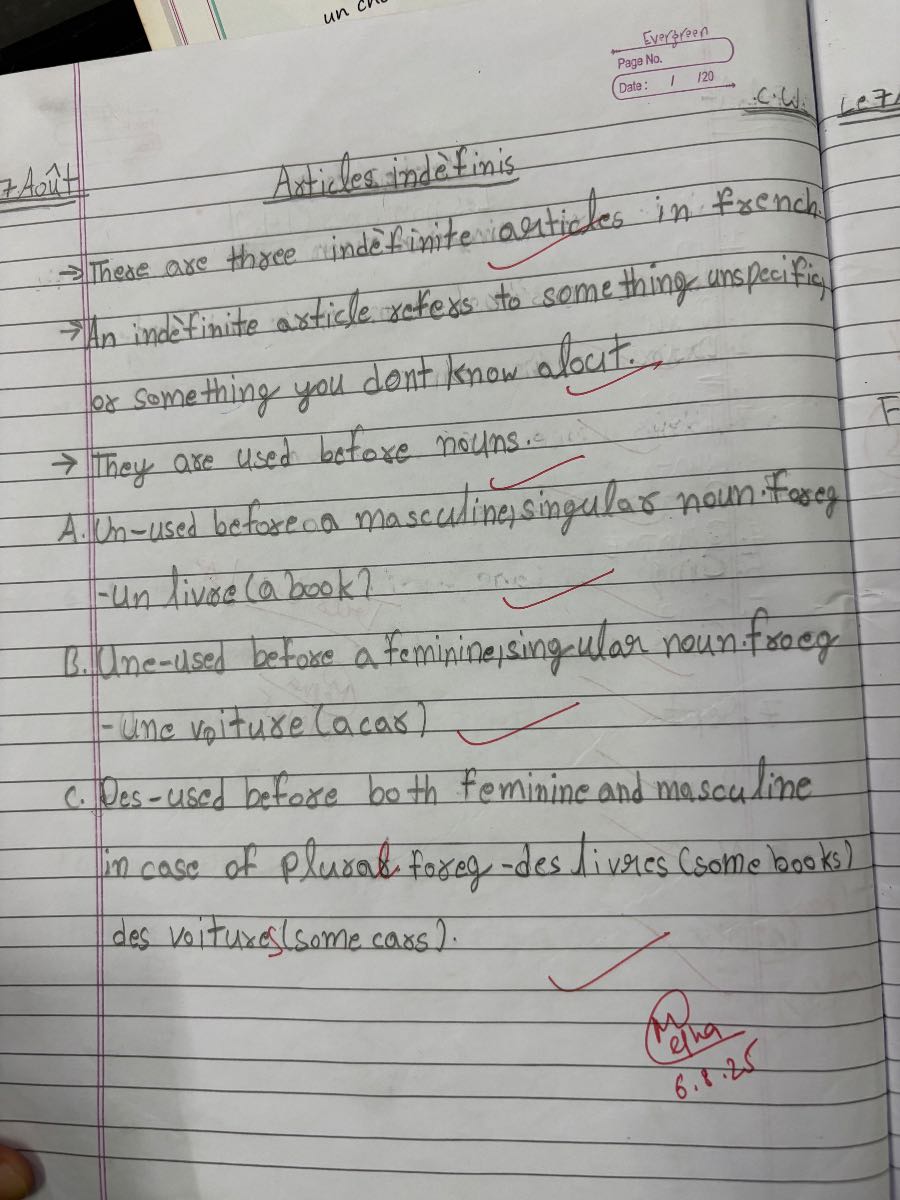 un
Evergreen
Page No.
Date: / /20
C.W.
Le 7
7 Août
Articles indèfinis
→ There are three indèfinite articles in french.
→ An indèfinite article refers to something unspecific,
or something you dont know about.
→ They are used before nouns.
A. Un-used before a masculine, singular noun. foreg
-un livre (a book)
B. Une-used before a feminine, singular noun. froeg
-une voiture (a car)
C. Des-used before both feminine and masculine
in case of plural. foreg -des livres (some books)
des voitures (some cars).
6.8.25